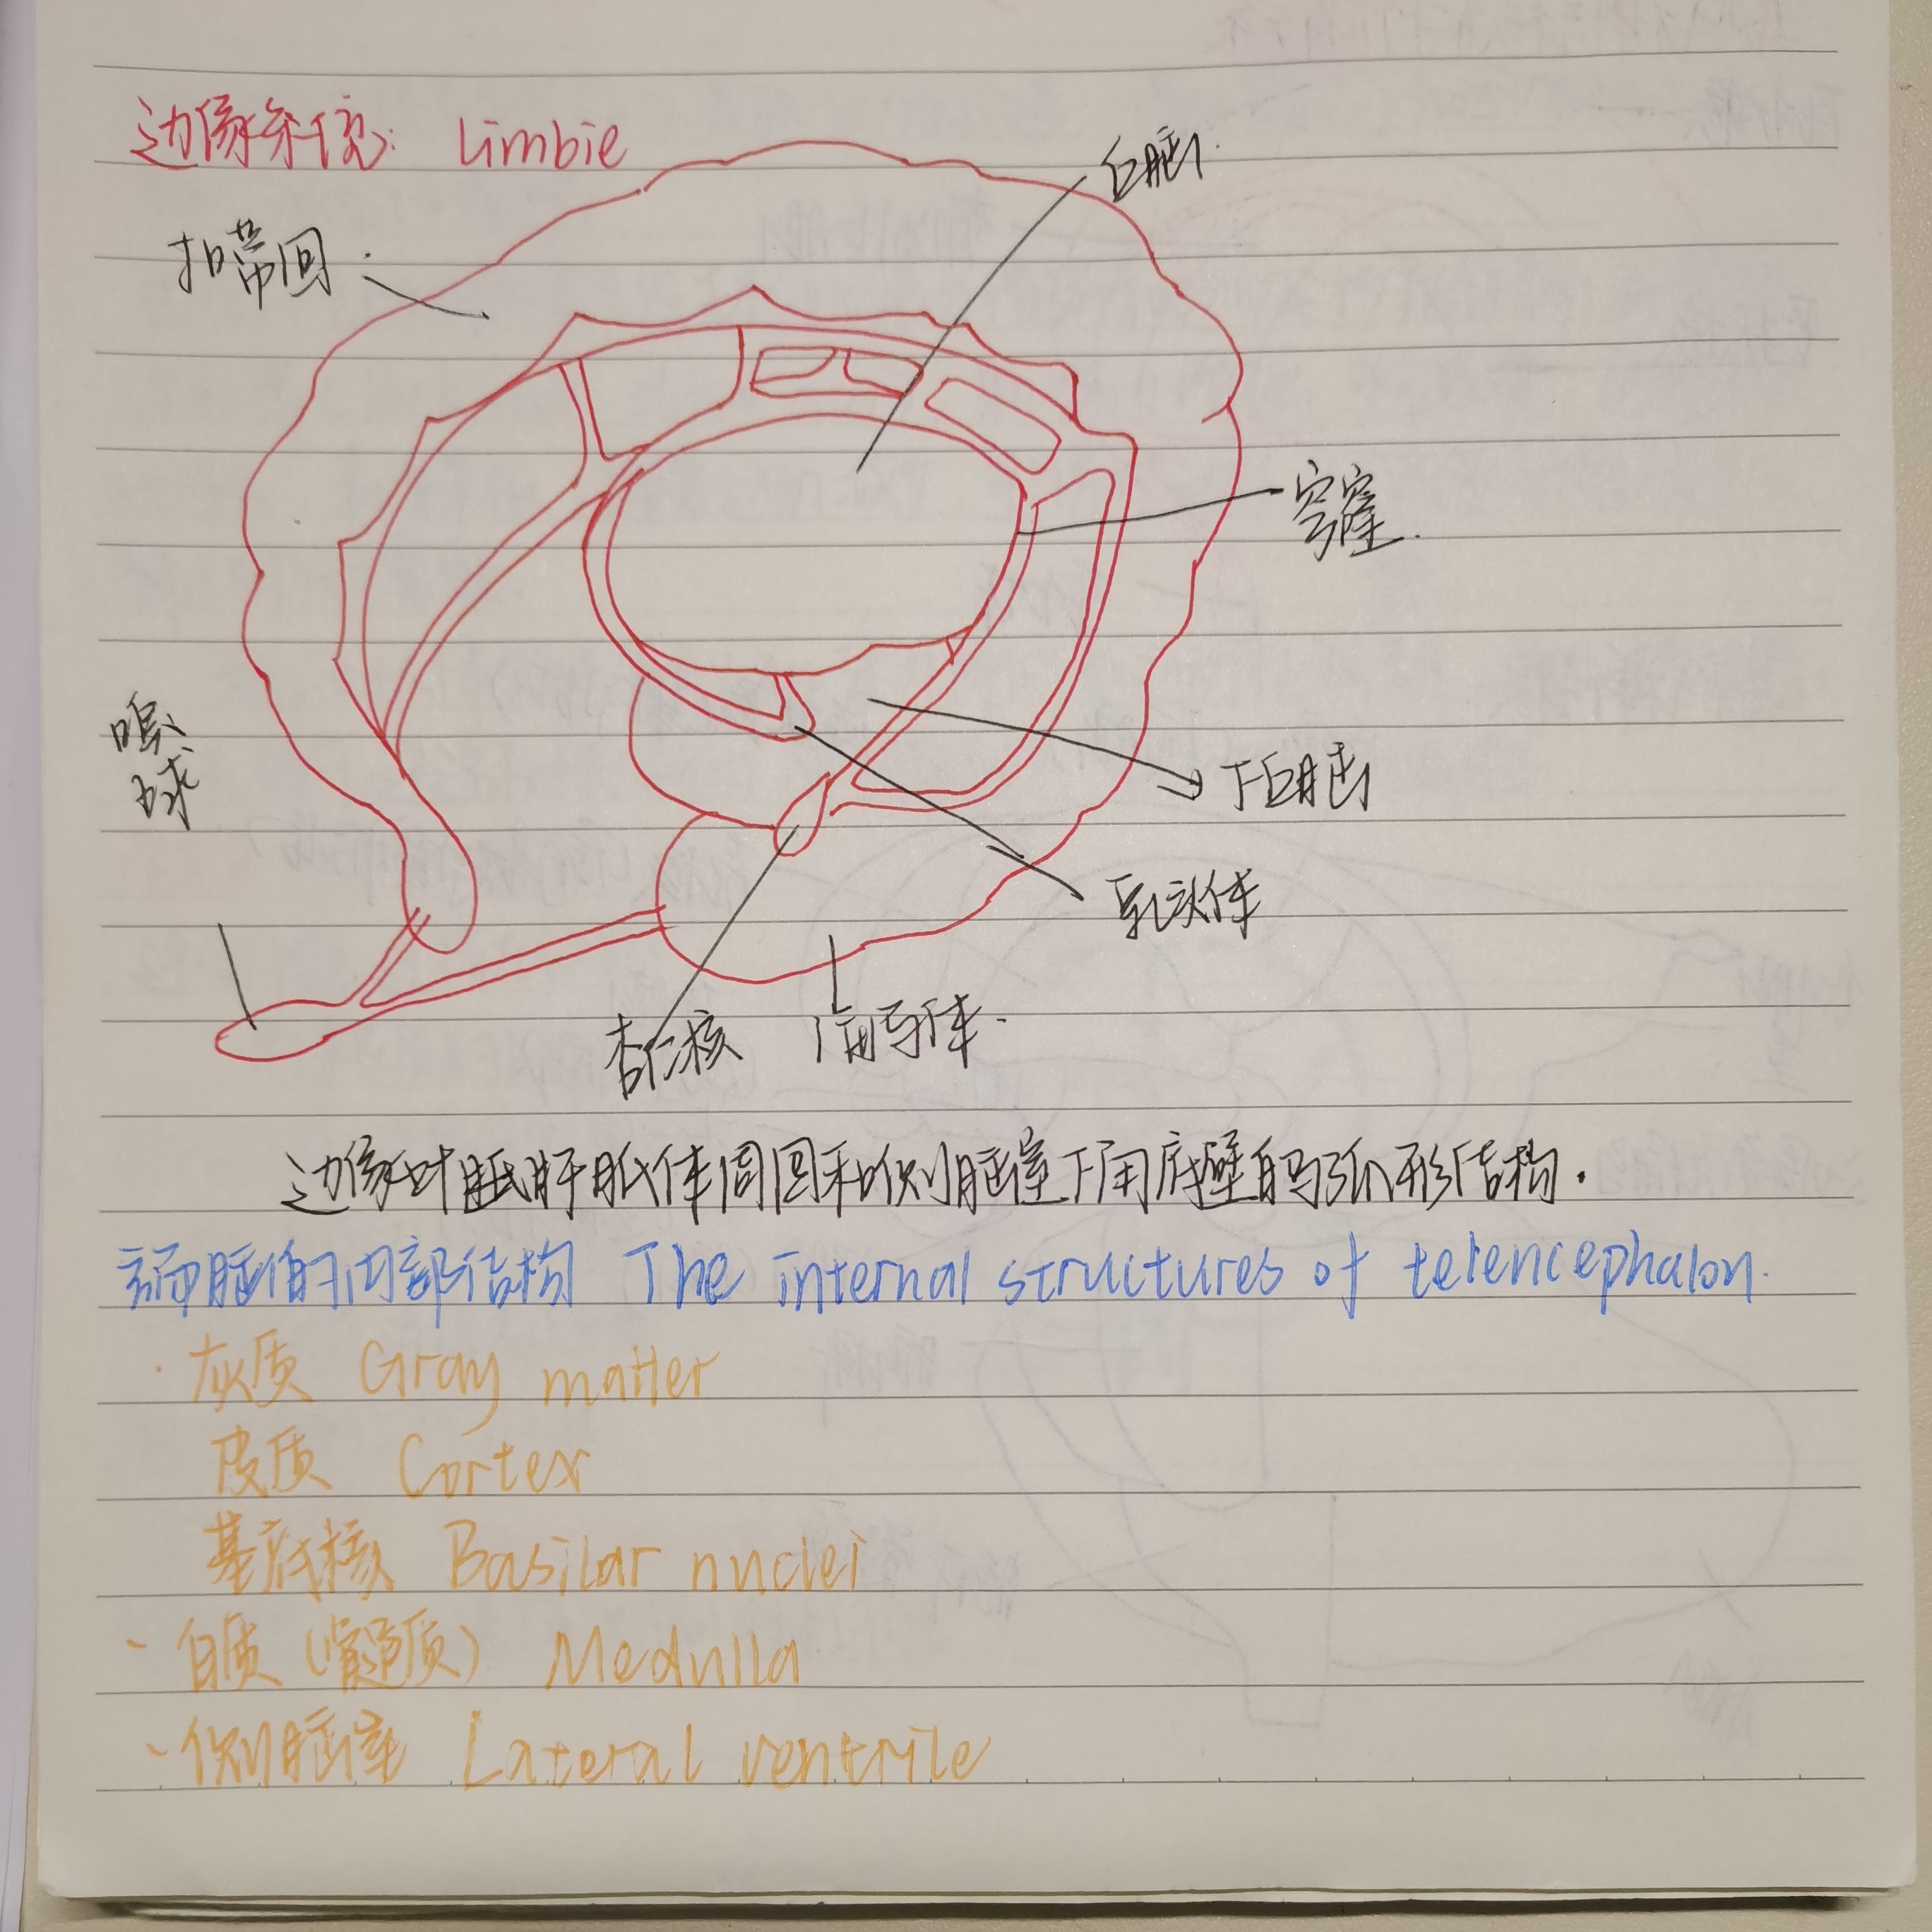 边缘系统: Limbie
丘脑
扣带回
穹窿
嗅
球
下丘脑
乳头体
杏仁核
海马体
边缘叶:胝胼胝体周围和侧脑室下角底壁的弧形结构.
端脑的内部结构 The internal structures of telencephalon.
· 灰质 Gray matter
皮质 Cortex
基底核 Basilar nuclei
- 白质(髓质) Medulla
- 侧脑室 Lateral ventrile